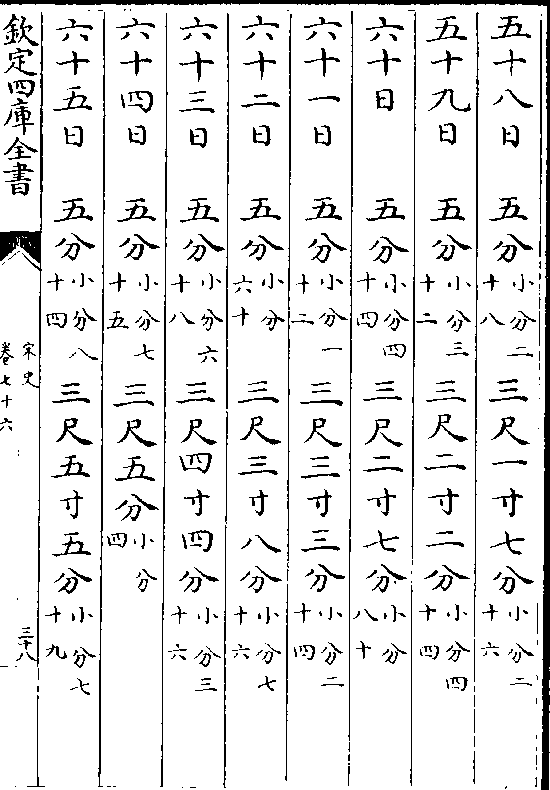 五十八日 五分小分二十八 三尺一寸七分小分二十六
五十九日 五分小分三十二 三尺二寸二分小分四十四
六十日 五分小分四十四 三尺二寸七分小分八十
六十一日 五分小分一十二 三尺三寸三分小分二十四
六十二日 五分小分六十 三尺三寸八分小分七十六
六十三日 五分小分六十八 三尺四寸四分小分三十六
六十四日 五分小分七十五 三尺五分小分四
六十五日 五分小分八十四 三尺五寸五分小分七十九
欽定四庫全書
宋史
卷七十六
三十八